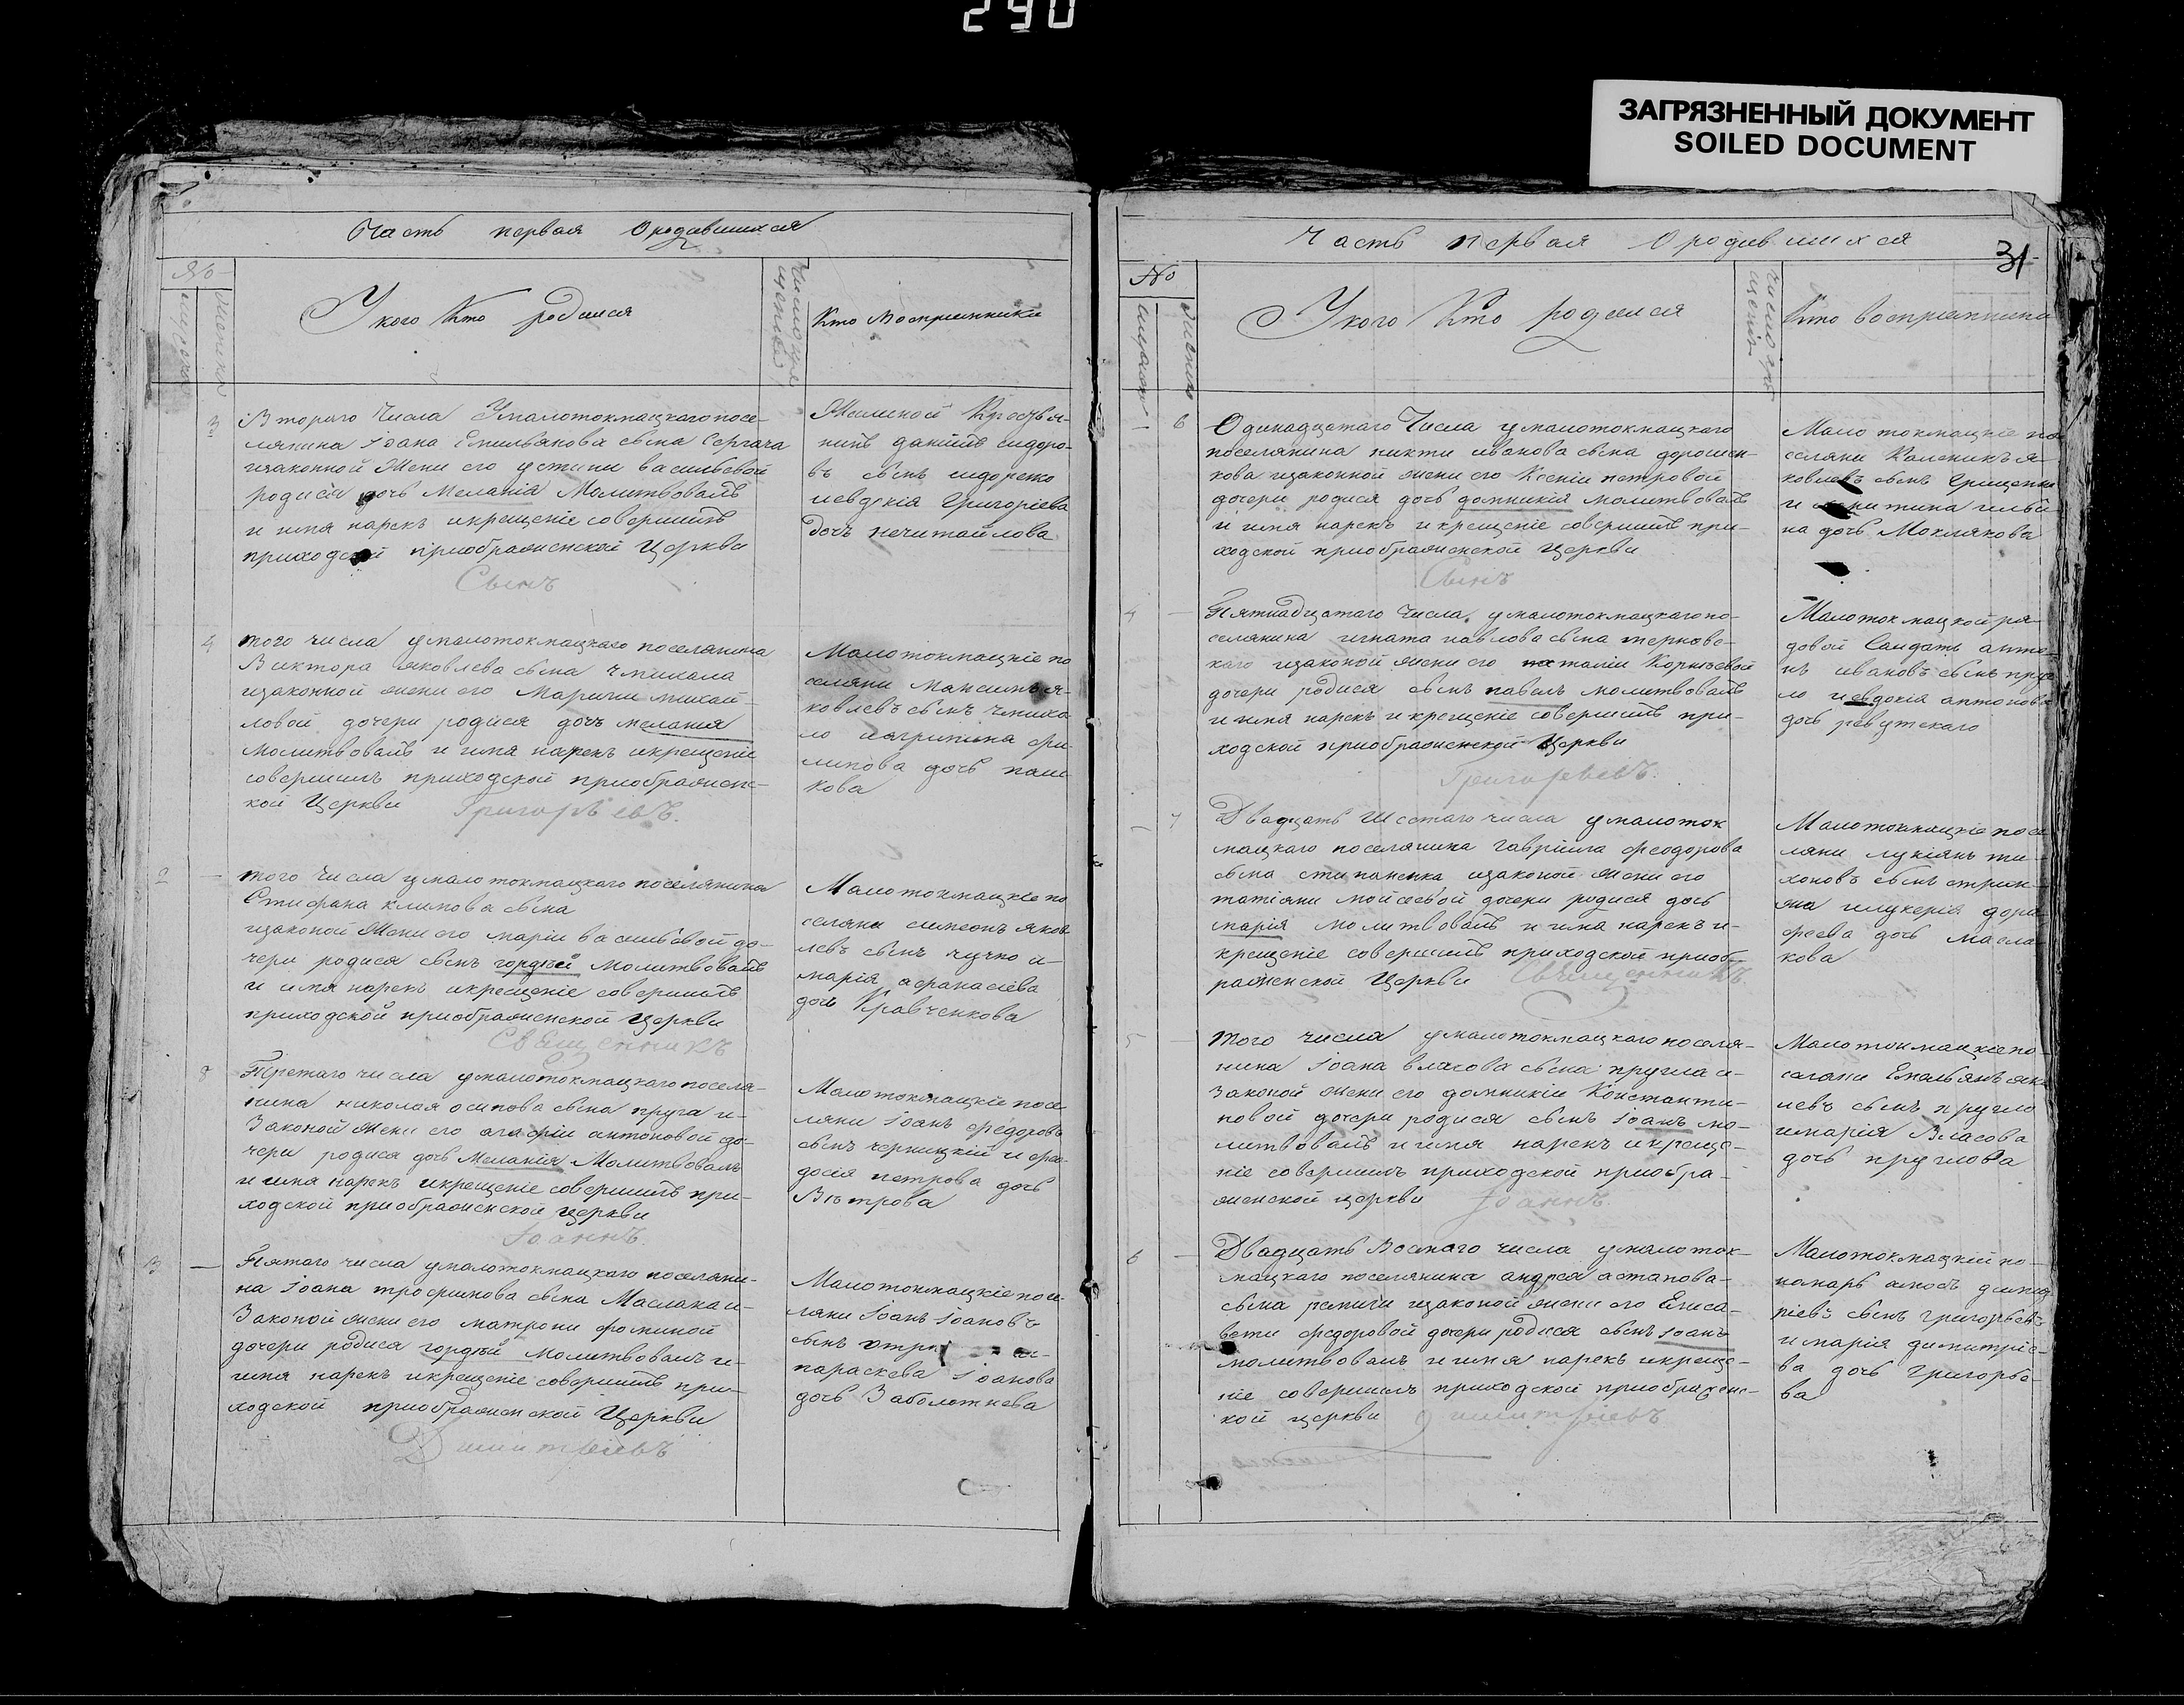 290
ЗАГРЯЗНЕННЫЙ ДОКУМЕНТ
SOILED DOCUMENT
Часть первая Ородившихся
№
У кого Кто родился
Кто Восприемники
3
Втораго Числа Умалотокмацкаго посе-
лянина Іоана Емильянова сына Сергача
изаконной Жени его устини василевой
родися дочь Меланія Молитвовалъ
и имя нарекъ икрещеніе совершилъ
приходской приображенской Церкви
Сынъ
данилъ сидоро-
въ сынъ сидоренко
иевдкія Григоріева
дочъ нечитайлова
4
того числа умалотокмацкаго поселянина
Виктора яковлева сына чмихала
изаконной жени его Марини михай-
ловой дочери родися дочъ мелания
молитвовалъ и имя нарекъ икрещеніе
совершилъ приходской приображенс-
кой Церкви Григорьевъ.
Малотокмацкіе по
селяни Максимъ я-
ковлевъ сынъ чмиха
ло иагрипина фи-
липова дочь паш-
кова
2
того числа умалотокмацкаго поселянина
Стифана климова сына
изаконой Жени его маріи василевой до-
чери родися сынъ гордѣй Молитвовалъ
и имя нарекъ икрещеніе совершилъ
приходской приображенской Церкви
Священникъ
Малотокмацкіе по
селяни симеонъ яков
левъ сынъ чучко и
марія афанасіева
дочь Кравченкова
8
Третаго числа умалотокмацкаго поселя-
нина николая осипова сына пруга и-
Законой жени его агафіи антоновой до-
чери родися дочъ Меланія Молитвовалъ
и имя нарекъ икрещеніе совершилъ при-
ходской приображенской Церкви
Іоаннъ.
Малотокмацкіе посе
ляни Іоанъ федоровъ
сынъ черницкій и фео
досія петрова дочь
Вѣтрова
3
Пятаго числа умалотокмацкаго поселяни-
на Іоана трофимова сына Маслака и-
Законой жени его матрони фоминой
дочери родися гордѣй Молитвовалъ и-
имя нарекъ икрещеніе совершилъ при-
ходской приображенской Церкви
Димитріевъ
Малотокмацкіе посе
ляни Іоанъ Іоановъ
сынъ
параскева Іоанова
дочь Заболотнева
Часть первая Ородившихся
31
№
У кого Кто родился
Кто восприемники
6
Одинадцатаго Числа умалотокмацкаго
поселянина никти иванова сына дорошен-
кова изаконной жени его Ксеніи петровой
дочери родися дочь домникія молитвовалъ
и имя нарекъ икрещеніе совершилъ при-
ходской приображенской Церкви
Сынъ
Малотокмацкіе по
селяни Каленикъ я-
ковлевъ сынъ Грищенко
на дочь Моклякова
4
Пятнадцатаго Числа умалотокмацкаго по-
селянина игната павлова сына тернове-
каго изаконой жени его наталіи Корнѣевой
дочери родися сынъ павелъ молитвовалъ
и имя нарекъ и крещеніе совершилъ при-
ходской приображенской Церкви
Григорьевъ.
Малотокмацкой ря-
довой Салдатъ анто-
нъ ивановъ сынъ
ло иевдокія антонова
дочь ревутскаго
7
Двадцать Шестаго числа умалоток
мацкаго поселянина Гавріила феодорова
сына стипаненка изаконой жени его
татіяни мойсеевой дочери родися дочь
марія молитвовалъ и имя нарекъ и-
крещеніе совершилъ приходской приоб-
раженской Церкви Священникъ.
Малотокмацкіе посе
ляни лукіянъ ти-
хоновъ сынъ стриж-
иглукерія доро
феева дочь масла
кова
5
того числа умалотокмацкаго поселя-
нина Іоана власова сына пругла и-
Законой жени его домникіи Константи-
новой дочери родися сынъ Іоанъ мо-
литвовалъ и имя нарекъ икреще-
ніе совершилъ приходской приобра-
женской церкви Іоаннъ.
Малотокмацкіе по-
селяни Емельянъ яко
левъ сынъ пругло
имарія Власова
дочь пруглова
6
Двадцать Восмаго числа умалоток-
мацкаго поселянина андрея астапова-
сына репиги изаконой жени его Елиса-
вети федоровой дочери родися сынъ Іоанъ
молитвовалъ и имя нарекъ икреще-
ніе совершилъ приходской приображенс-
кой церкви Димитріевъ
Малотокмацкій по-
номарь димит
ріевъ сынъ Григорьевъ
имарія димитріе-
ва дочь Григорье-
ва